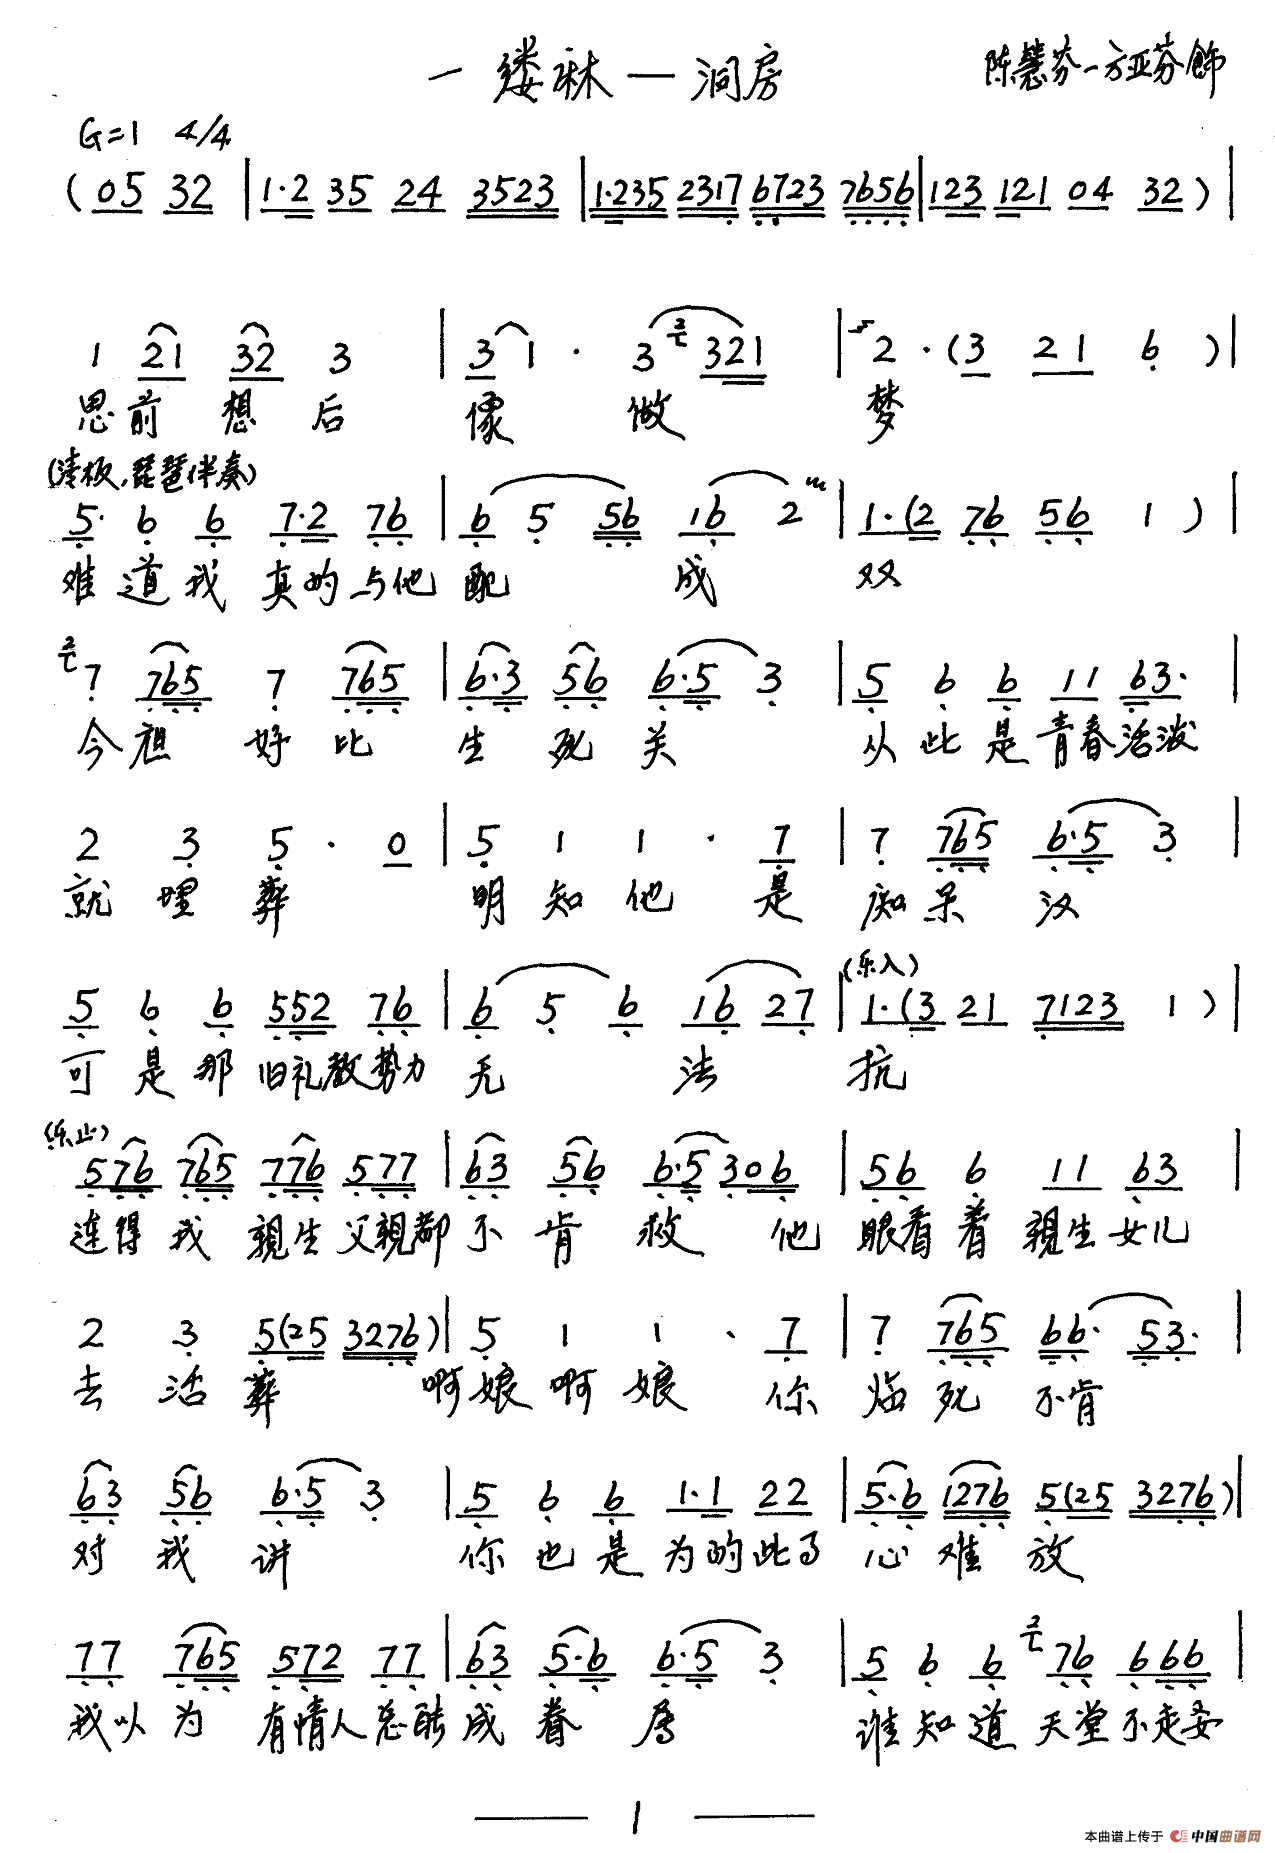 一缕麻—洞房
陈慧芬—方亚芬饰
G=1 4/4
(05 32 | 1·2 35 24 3523 | 1·235 2317 6723 7656 | 123 121 04 32) |
1 21 32 3 | 3 1 · 3 2 321 | 2 ·(3 21 6) |
思前想后 像做梦
(清板,琵琶伴奏)
5· 6 6 7·2 76 | 6 5 56 16 2 | 1·(2 76 56 1) |
难道我真的与他配成双
2 7 765 7 765 | 6·3 56 6·5 3 | 5 6 6 11 63· |
今夜好比生死关 从此是青春活泼
2 3 5 · 0 | 5 1 1 · 7 | 7 765 6·5 3 |
就埋葬 明知他是痴呆汉
(乐入)
5 6 6 552 76 | 6 5 6 16 27 | 1·(3 21 7123 1) |
可是那旧礼教势力无法抗
(乐止)
576 765 776 577 | 63 56 6·5 306 | 56 6 11 63 |
连得我親生父親都不肯救他 眼看着親生女儿
2 3 5(25 3276) | 5 1 1 · 7 | 7 765 66· 53· |
去活葬 啊娘啊娘你临死不肯
63 56 6·5 3 | 5 6 6 1·1 22 | 5·6 1276 5(25 3276) |
对我讲 你也是为的此事心难放
77 765 572 77 | 63 5·6 6·5 3 | 5 6 6 2 76 666 |
我以为有情人总能成眷属 谁知道天堂不走要
— 1 —
本曲谱上传于 中国曲谱网